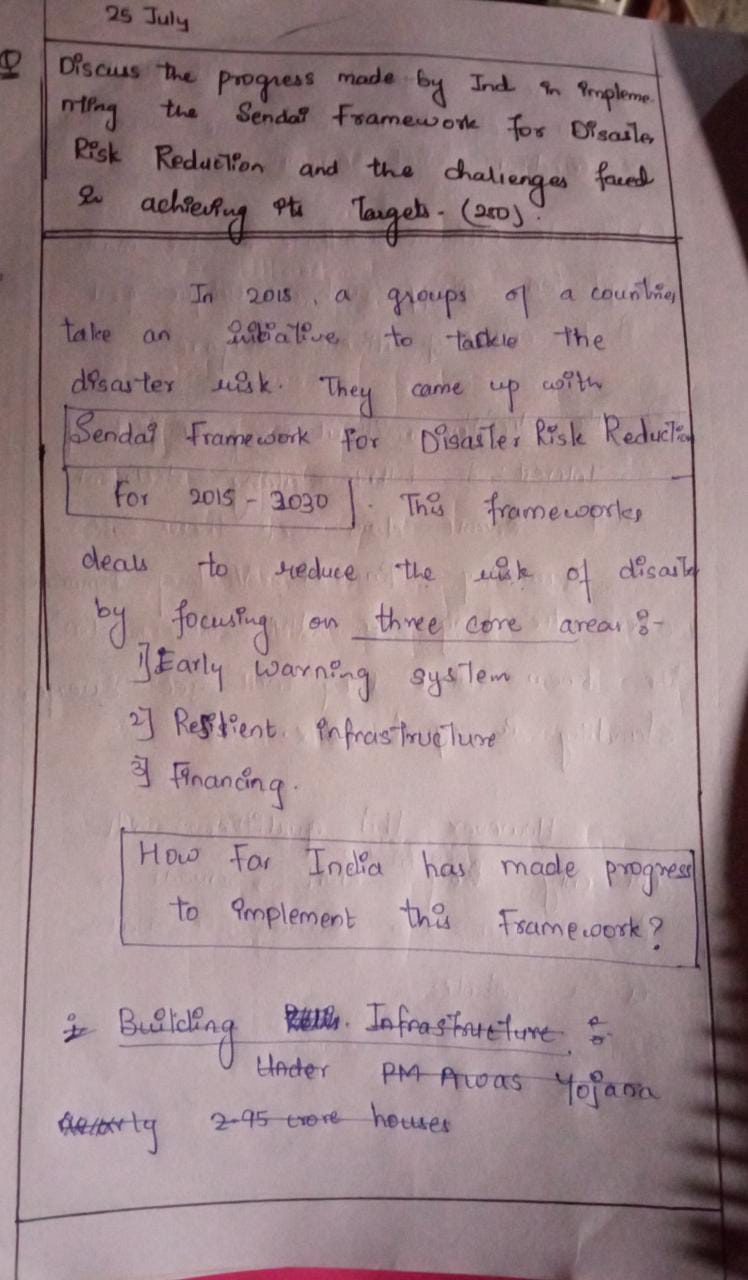 25 July
Q Discuss the progress made by Ind in impleme-
nting the Sendai Framework for Disaster
Risk Reduction and the challenges faced
in achieving its Targets. (250).
In 2015, a groups of a countries
take an initiative to tackle the
disaster risk. They came up with
Sendai Framework for Disaster Risk Reduction
for 2015 - 2030. This frameworks
deals to reduce the risk of disaster
by focusing on three core areas :-
1] Early warning system
2] Resilient infrastructure
3] Financing.
How Far India has made progress
to implement this Framework?
Building Infrastructure :
Under PM Awas Yojana
2.95 crore houses